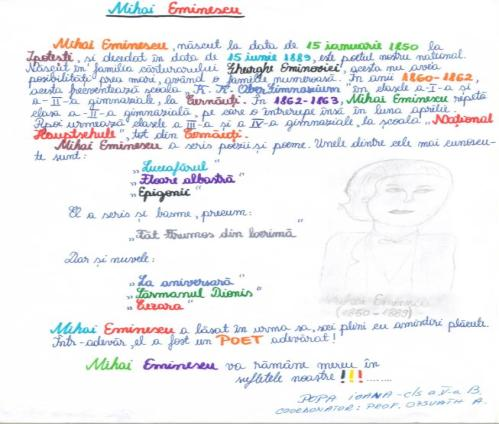 Mihai Eminescu
Mihai Eminescu, născut la data de 15 ianuarie 1850 la
Ipotești și decedat în data de 15 iunie 1889, este poetul nostru național.
Născut în familia căminarului Gheorghe Eminovici, acesta nu avea
posibilități prea mari, având o familie numeroasă. În anii 1860-1862,
acesta frecventează școala "K. K. Ober Gimnasium" în clasele a-I-a și
a-II-a gimnaziale, la Cernăuți. În 1862-1863, Mihai Eminescu repetă
clasa a-II-a gimnazială, pe care o întrerupe însă în luna aprilie.
Apoi urmează clasele a III-a și a IV-a gimnaziale, la școala "Național
Hauptschule", tot din Cernăuți.
Mihai Eminescu a scris poezii și poeme. Unele dintre cele mai cunoscu-
te sunt:
"Luceafărul"
"Floare albastră"
"Epigonic"
El a scris și basme, precum:
"Făt Frumos din lacrimă"
Dar și nuvele:
"La aniversară"
"Sarmanul Dionis"
"Cezara"
Mihai Eminescu
(1850-1889)
Mihai Eminescu a lăsat în urma sa, saci plini cu amintiri plăcute.
Într-adevăr, el a fost un POET adevărat!
Mihai Eminescu va rămâne mereu în
sufletele noastre !!!.......
POPA IOANA-cls a V-a B.
COORDONATOR: PROF. ORSVATH A.